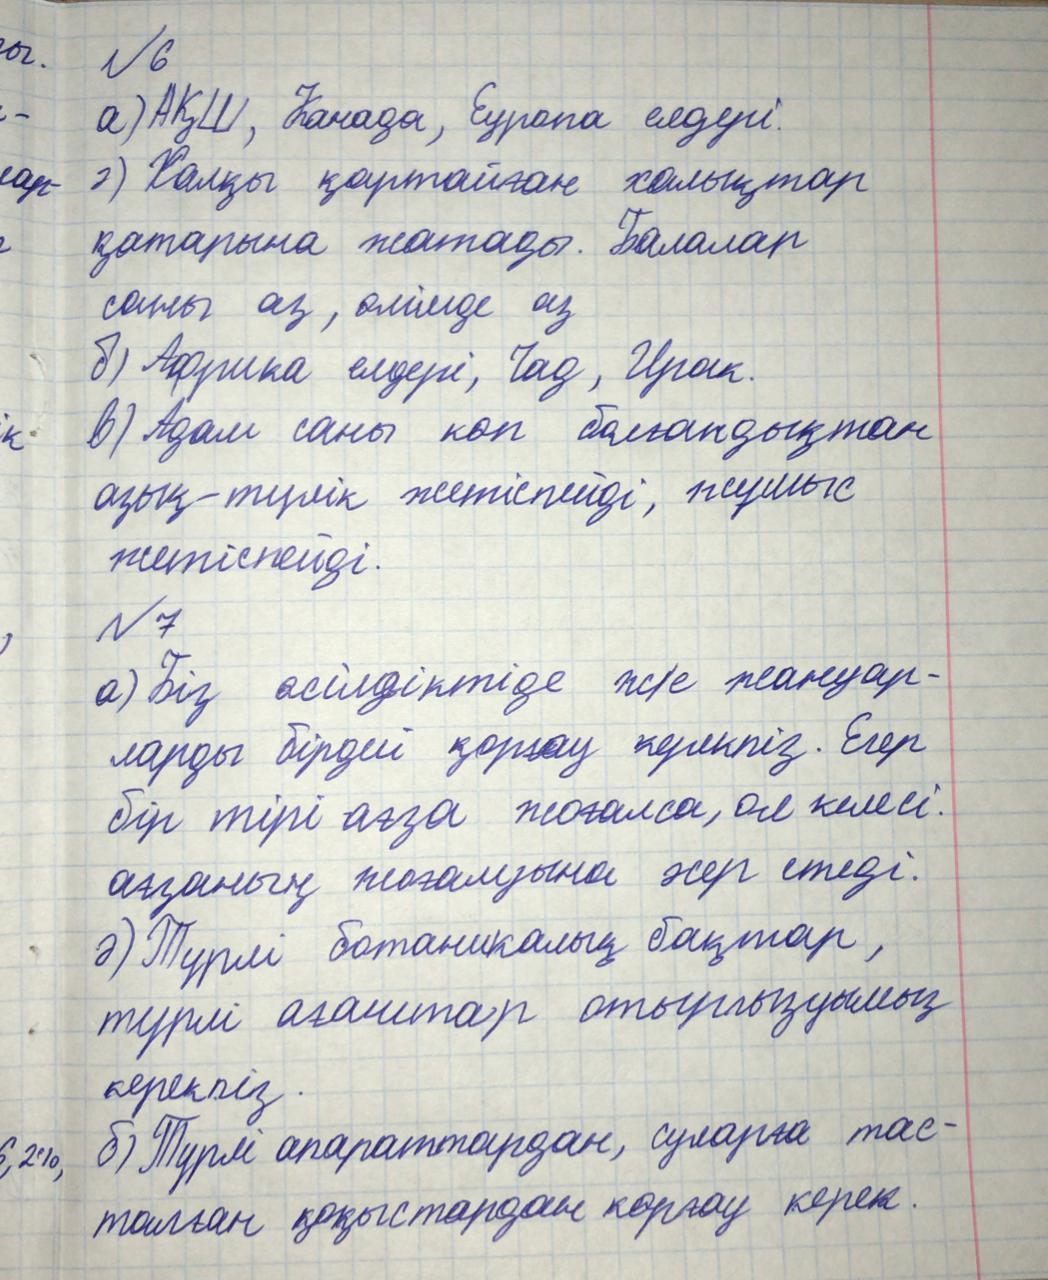 №6
а) АҚШ, Канада, Еуропа елдері.
ә) Халқы қартайған халықтар
қатарына жатады. Балалар
саны аз, өлімде аз
б) Африка елдері, Чад, Ирак.
в) Адам саны көп болғандықтан
азық-түлік жетіспейді, жұмыс
жетіспейді.
№7
а) Біз өсімдіктіде ж/е жануар-
ларды бірдей қорғау керекпіз. Егер
бір тірі ағза жоғалса, ол келесі.
ағзаның жоғалуына әсер етеді.
ә) Түрлі ботаникалық бақтар,
түрлі ағаштар отырғызуымыз
керекпіз.
б) Түрлі апараттардан, суларға тас-
талған қоқыстардан қорғау керек.